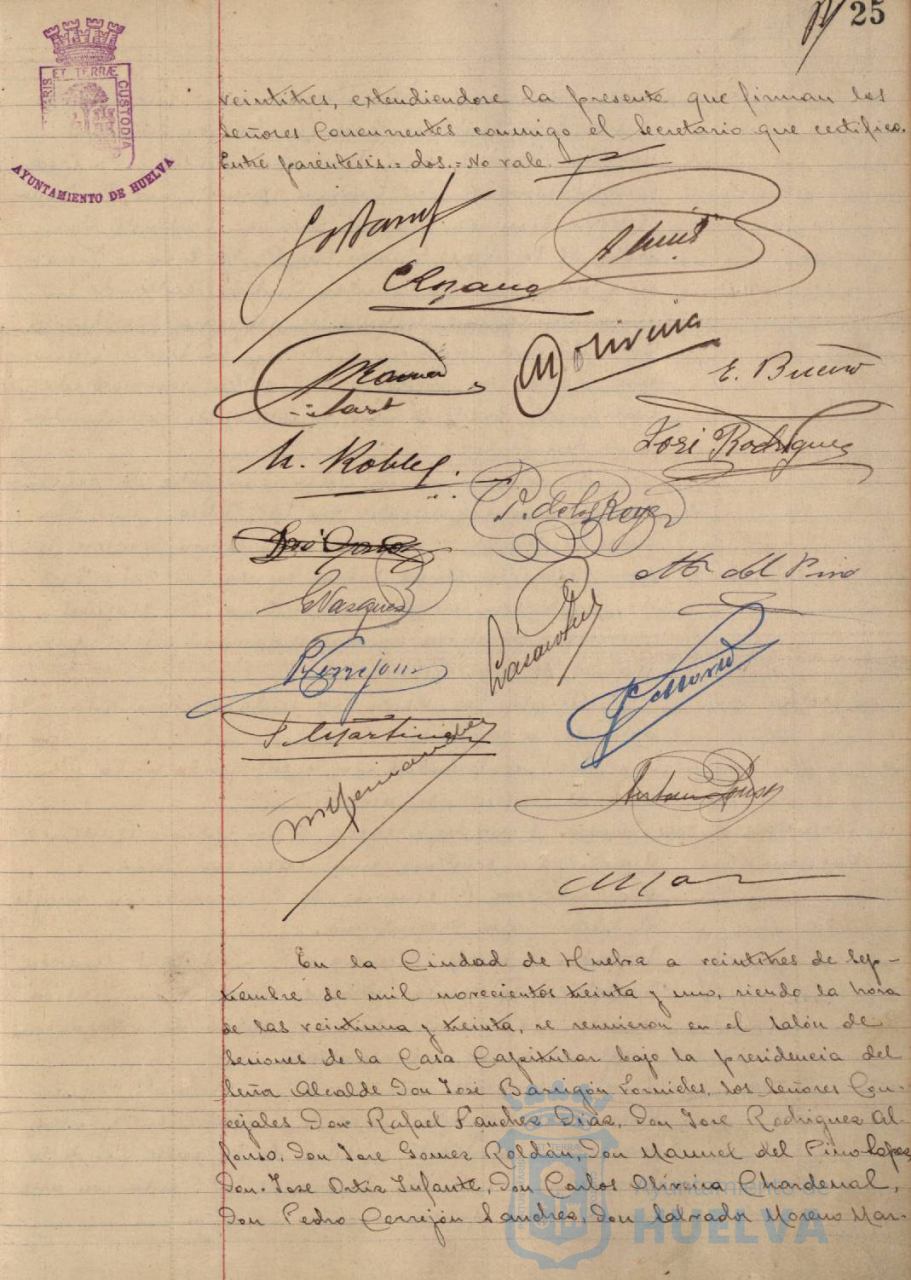 25
ET TERRÆ
CUSTODIA
AYUNTAMIENTO DE HUELVA
veintitres, extendiendose la presente que firman los
Señores Concurrentes conmigo el Secretario que certifico.
Entre paréntesis.= dos.= No vale.
M Oliveira
E. Bueno
N. Robles.
José Rodríguez
P. de los Reyes
Mn del Pino
E Vazquez
P. Cerrejon
S. Martinez
En la Ciudad de Huelva a veintitres de Sep-
tiembre de mil novecientos treinta y uno, siendo la hora
de las veintiuna y treinta, se reunieron en el salón de
Sesiones de la Casa Capitular bajo la presidencia del
Señor Alcalde Don José Barrigón Fornieles, los Señores Con-
cejales Don Rafael Sanchez Diaz, Don José Rodriguez Al-
fonso, Don José Gomez Roldán, Don Manuel del Pino Lopez,
Don José Ortiz Infante, Don Carlos Oliveira Chardenal,
Don Pedro Cerrejón Sanchez, Don Salvador Moreno Mar-
Ayuntamiento de
HUELVA